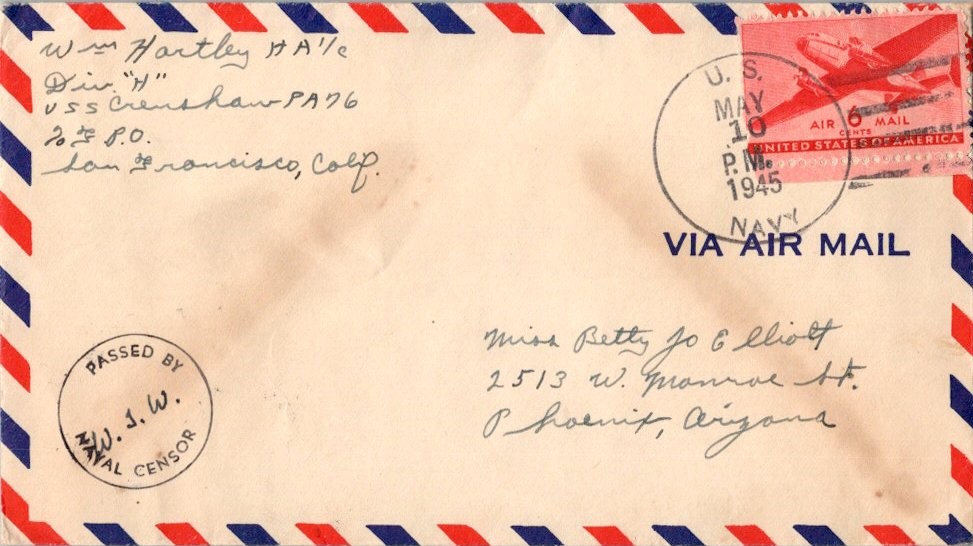 Wm Hartley HA 1/c
Div. "H"
USS Crenshaw PA76
% F.P.O.
San Francisco, Calif.
U. S.
MAY
10
P.M.
1945
NAVY
AIR 6 MAIL
CENTS
UNITED STATES OF AMERICA
VIA AIR MAIL
PASSED BY
W. J. W.
NAVAL CENSOR
Miss Betty Jo Elliott
2513 W. Monroe St.
Phoenix, Arizona